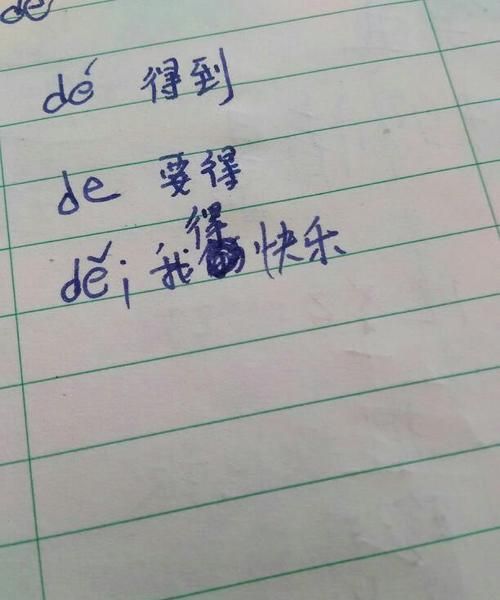 de
dé 得到
de 要得
děi 我得快乐